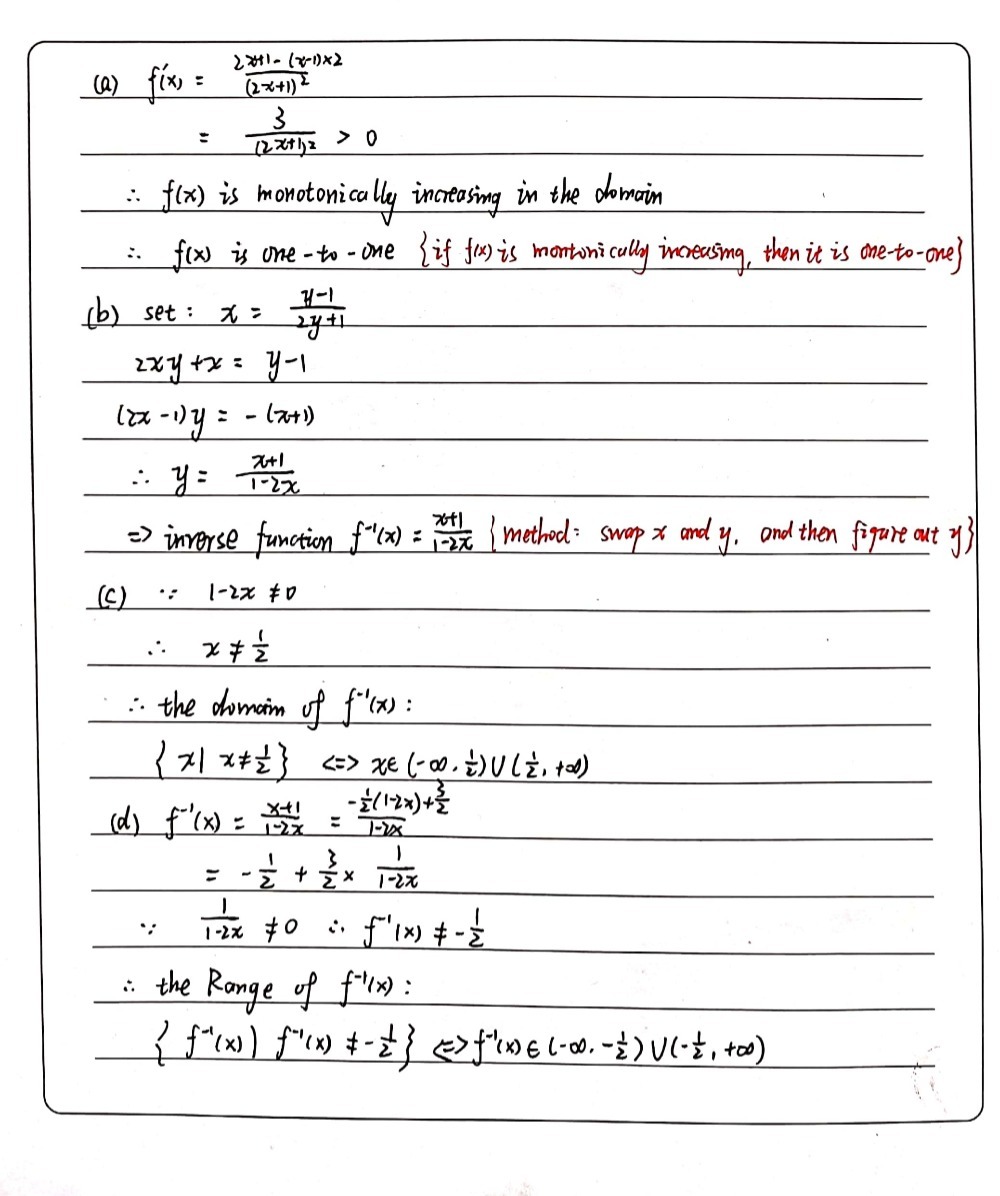 (a) f'(x) = (2x+1-(x-1)×2)/(2x+1)²
= 3/(2x+1)² > 0
∴ f(x) is monotonically increasing in the domain
∴ f(x) is one-to-one {if f(x) is montonically increasing, then it is one-to-one}
(b) set: x = (y-1)/(2y+1)
2xy+x = y-1
(2x-1)y = -(x+1)
∴ y = (x+1)/(1-2x)
=> inverse function f⁻¹(x) = (x+1)/(1-2x) {method: swap x and y, and then figure out y}
(c) ∵ 1-2x ≠ 0
∴ x ≠ 1/2
∴ the domain of f⁻¹(x):
{x| x≠1/2} <=> x∈(-∞,1/2)∪(1/2,+∞)
(d) f⁻¹(x) = (x+1)/(1-2x) = (-1/2(1-2x)+3/2)/(1-2x)
= -1/2 + 3/2 × 1/(1-2x)
∵ 1/(1-2x) ≠ 0 ∴ f⁻¹(x) ≠ -1/2
∴ the Range of f⁻¹(x):
{f⁻¹(x)| f⁻¹(x) ≠ -1/2} <=> f⁻¹(x)∈(-∞,-1/2)∪(-1/2,+∞)